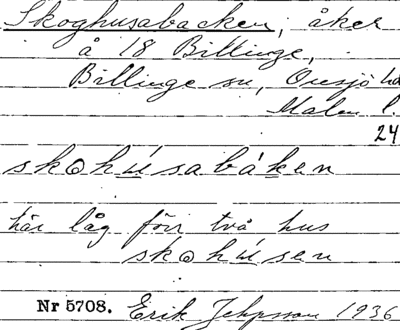 Skoghusabacken, åker
å 18 Billinge,
Billinge sn, Onsjö hd
Malm. l.
24
skohúsabáken
här låg förr två hus
skohúsen
Nr 5708. Erik Jeppsson 1936